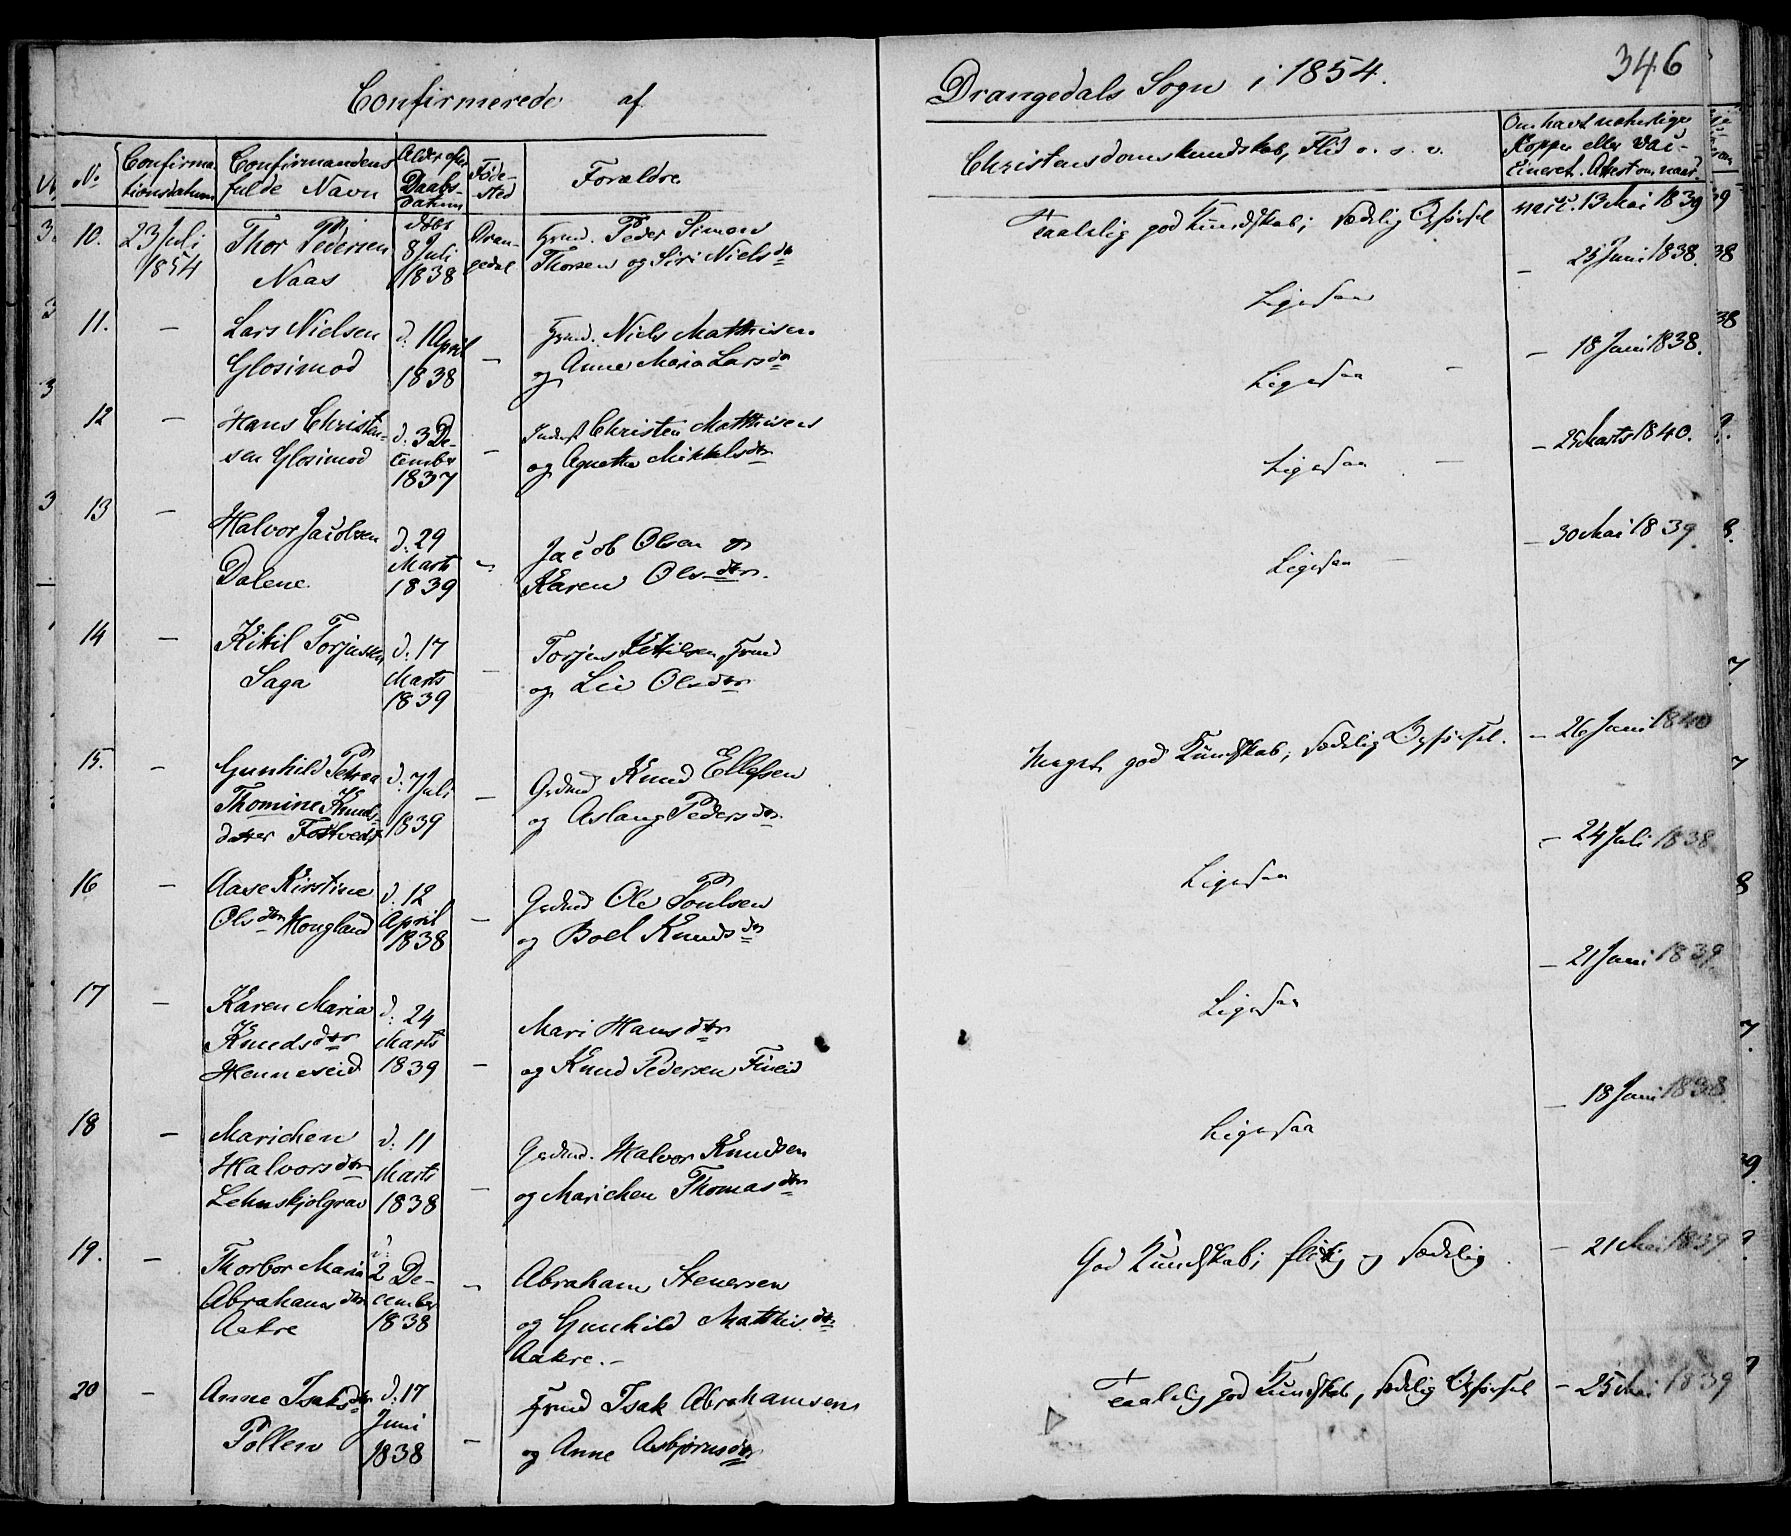 346
Confirmerede af Drangedals Sogn i 1854.
No
Confirma-
tionsdatum
Confirmandens
fulde Navn
Alder efter
Daabs-
datum
Føde-
sted
Forældre
Christendomskundskab, Flid o. s. v.
Om havt naturlige
Kopper eller Vac-
cineret. Attest om naar.
10. 23 Juli
1854
Thor Pedersen
Naas
døbt
8 Juli
1838
Dran-
gedal
Grmd. Peder Simon
Thorsen og Siri Nielsdtr
Taalelig god Kundskab; sædelig Opførsel
vacc. 13 Mai 1839
11. –
Lars Nielsen
Glosimod
d. 1 April
1838
–
Grmd. Niels Matthisen
og Anne Maria Larsdtr
Ligesaa
– 25 Juni 1838.
12 –
Hans Christen-
sen Glosimod
d. 3 De-
cember
1837
–
Inderst Christen Matthisen
og Agnethe Mikkelsdtr
Ligesaa
– 18 Juni 1838.
13 –
Halvor Jacobsen
Dalene
d. 29
Marts
1839
–
Jacob Olsen og
Karen Olsdtr.
Ligesaa
– 25 Marts 1840.
14 –
Kitil Torjussen
Saga
d. 17
Marts
1839
–
Torjus Kittilsen, Grmd
og Liv Olsdtr
Ligesaa
– 30 Mai 1839.
15. –
Gunhild Petraa
Thomine Knuds-
datter Tostvedt
d. 7 Juli
1839
–
Grdmd Knud Ellefsen
og Aslaug Pedersdtr
Meget god Kundskab; sædelig Opførsel.
– 26 Juni 1840
16 –
Aase Kirstine
Olsdtr Hougland
d. 12
April
1838
–
Grdmd Ole Poulsen
og Boel Knudsdtr
Ligesaa
– 24 Juli 1838.
17 –
Karen Maria
Knudsdtr
Henneseid
d. 24
Marts
1839
–
Mari Hansdtr
og Knud Pedersen Fineid
Ligesaa
– 21 Juni 1839.
18 –
Marichen
Halvorsdtr
Lehnskjolgrav
d. 11
Marts
1838
–
Grdmd. Halvor Knudsen
og Marichen Thomasdtr
Ligesaa
– 18 Juni 1838.
19. –
Thorbor Maria
Abrahamsdtr
Aakre
d.
2 De-
cember
1838
–
Abraham Stenersen
og Gunhild Matthisdtr
Aakre. –
God Kundskab; flittig og sædelig
– 21 Mai 1839
20 –
Anne Isaksdtr
Pollen
d. 17
Juni
1838
–
Grmd Isak Abrahamsen
og Anne Asbjørnsdtr
Taalelig god Kundskab, sædelig Opførsel
– 25 Mai 1839